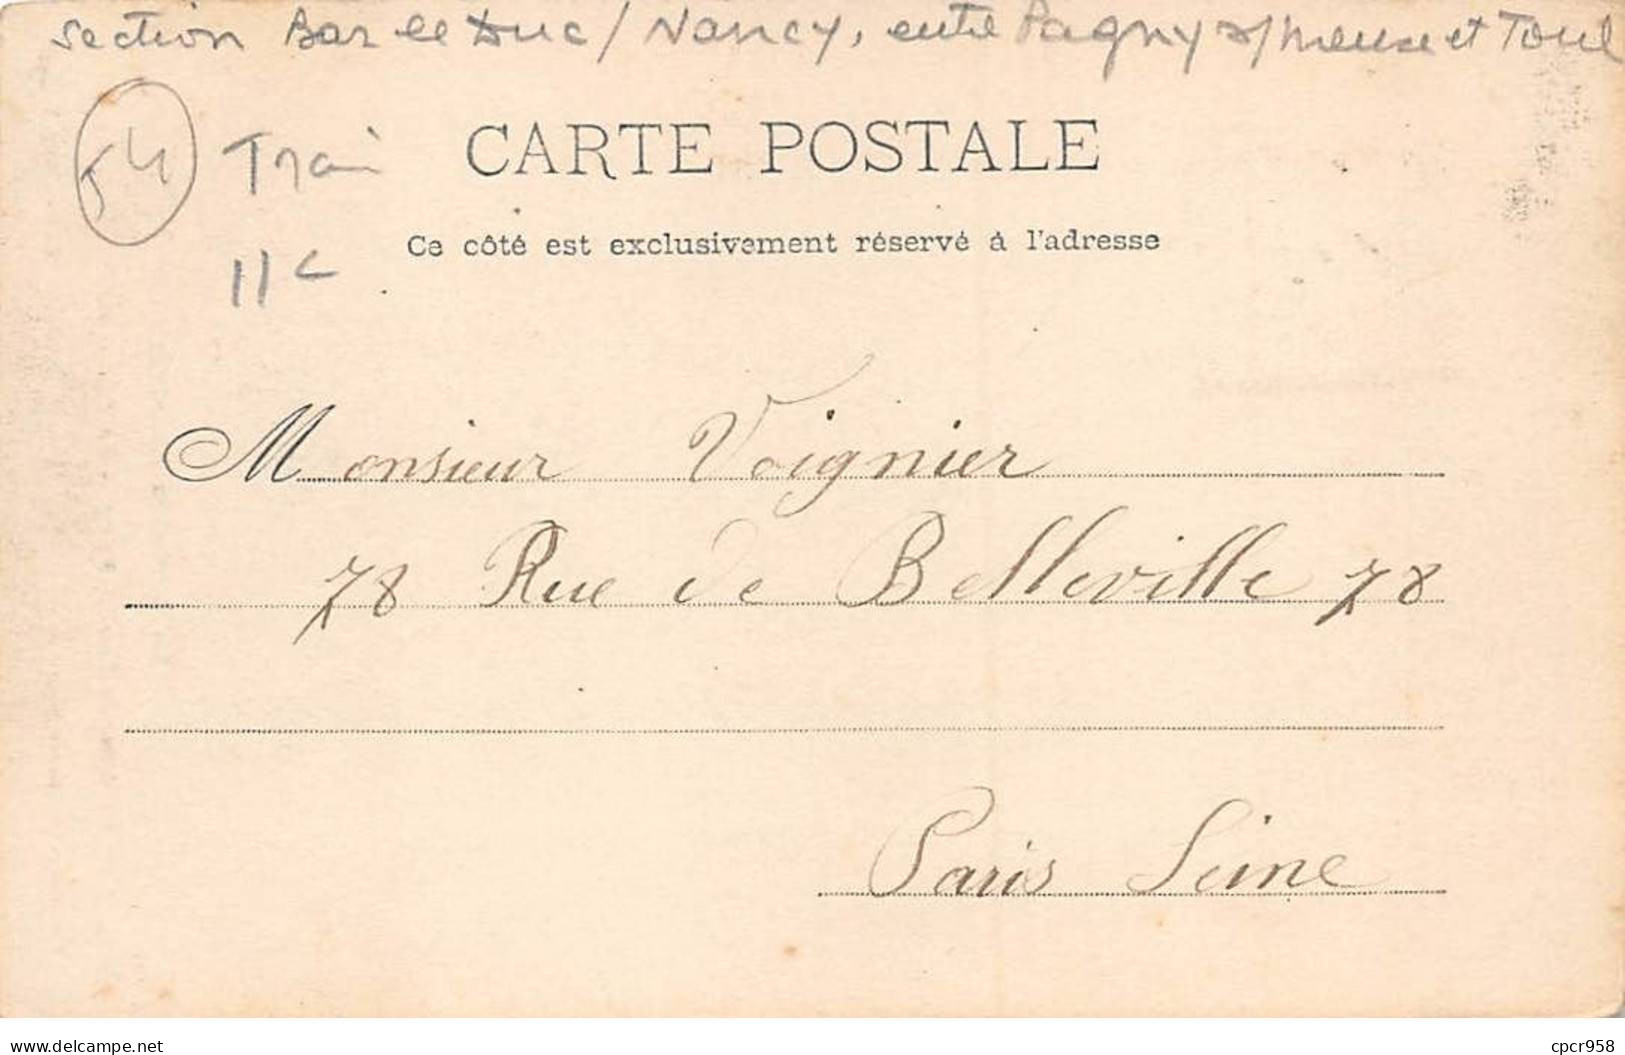 section Bar le Duc / Nancy, entre Pagny s/ Meuse et Toul
54
Train
11c
CARTE POSTALE
Ce côté est exclusivement réservé à l'adresse
Monsieur Voignier
78 Rue de Belleville 78
Paris Seine
www.delcampe.net
cpcr958